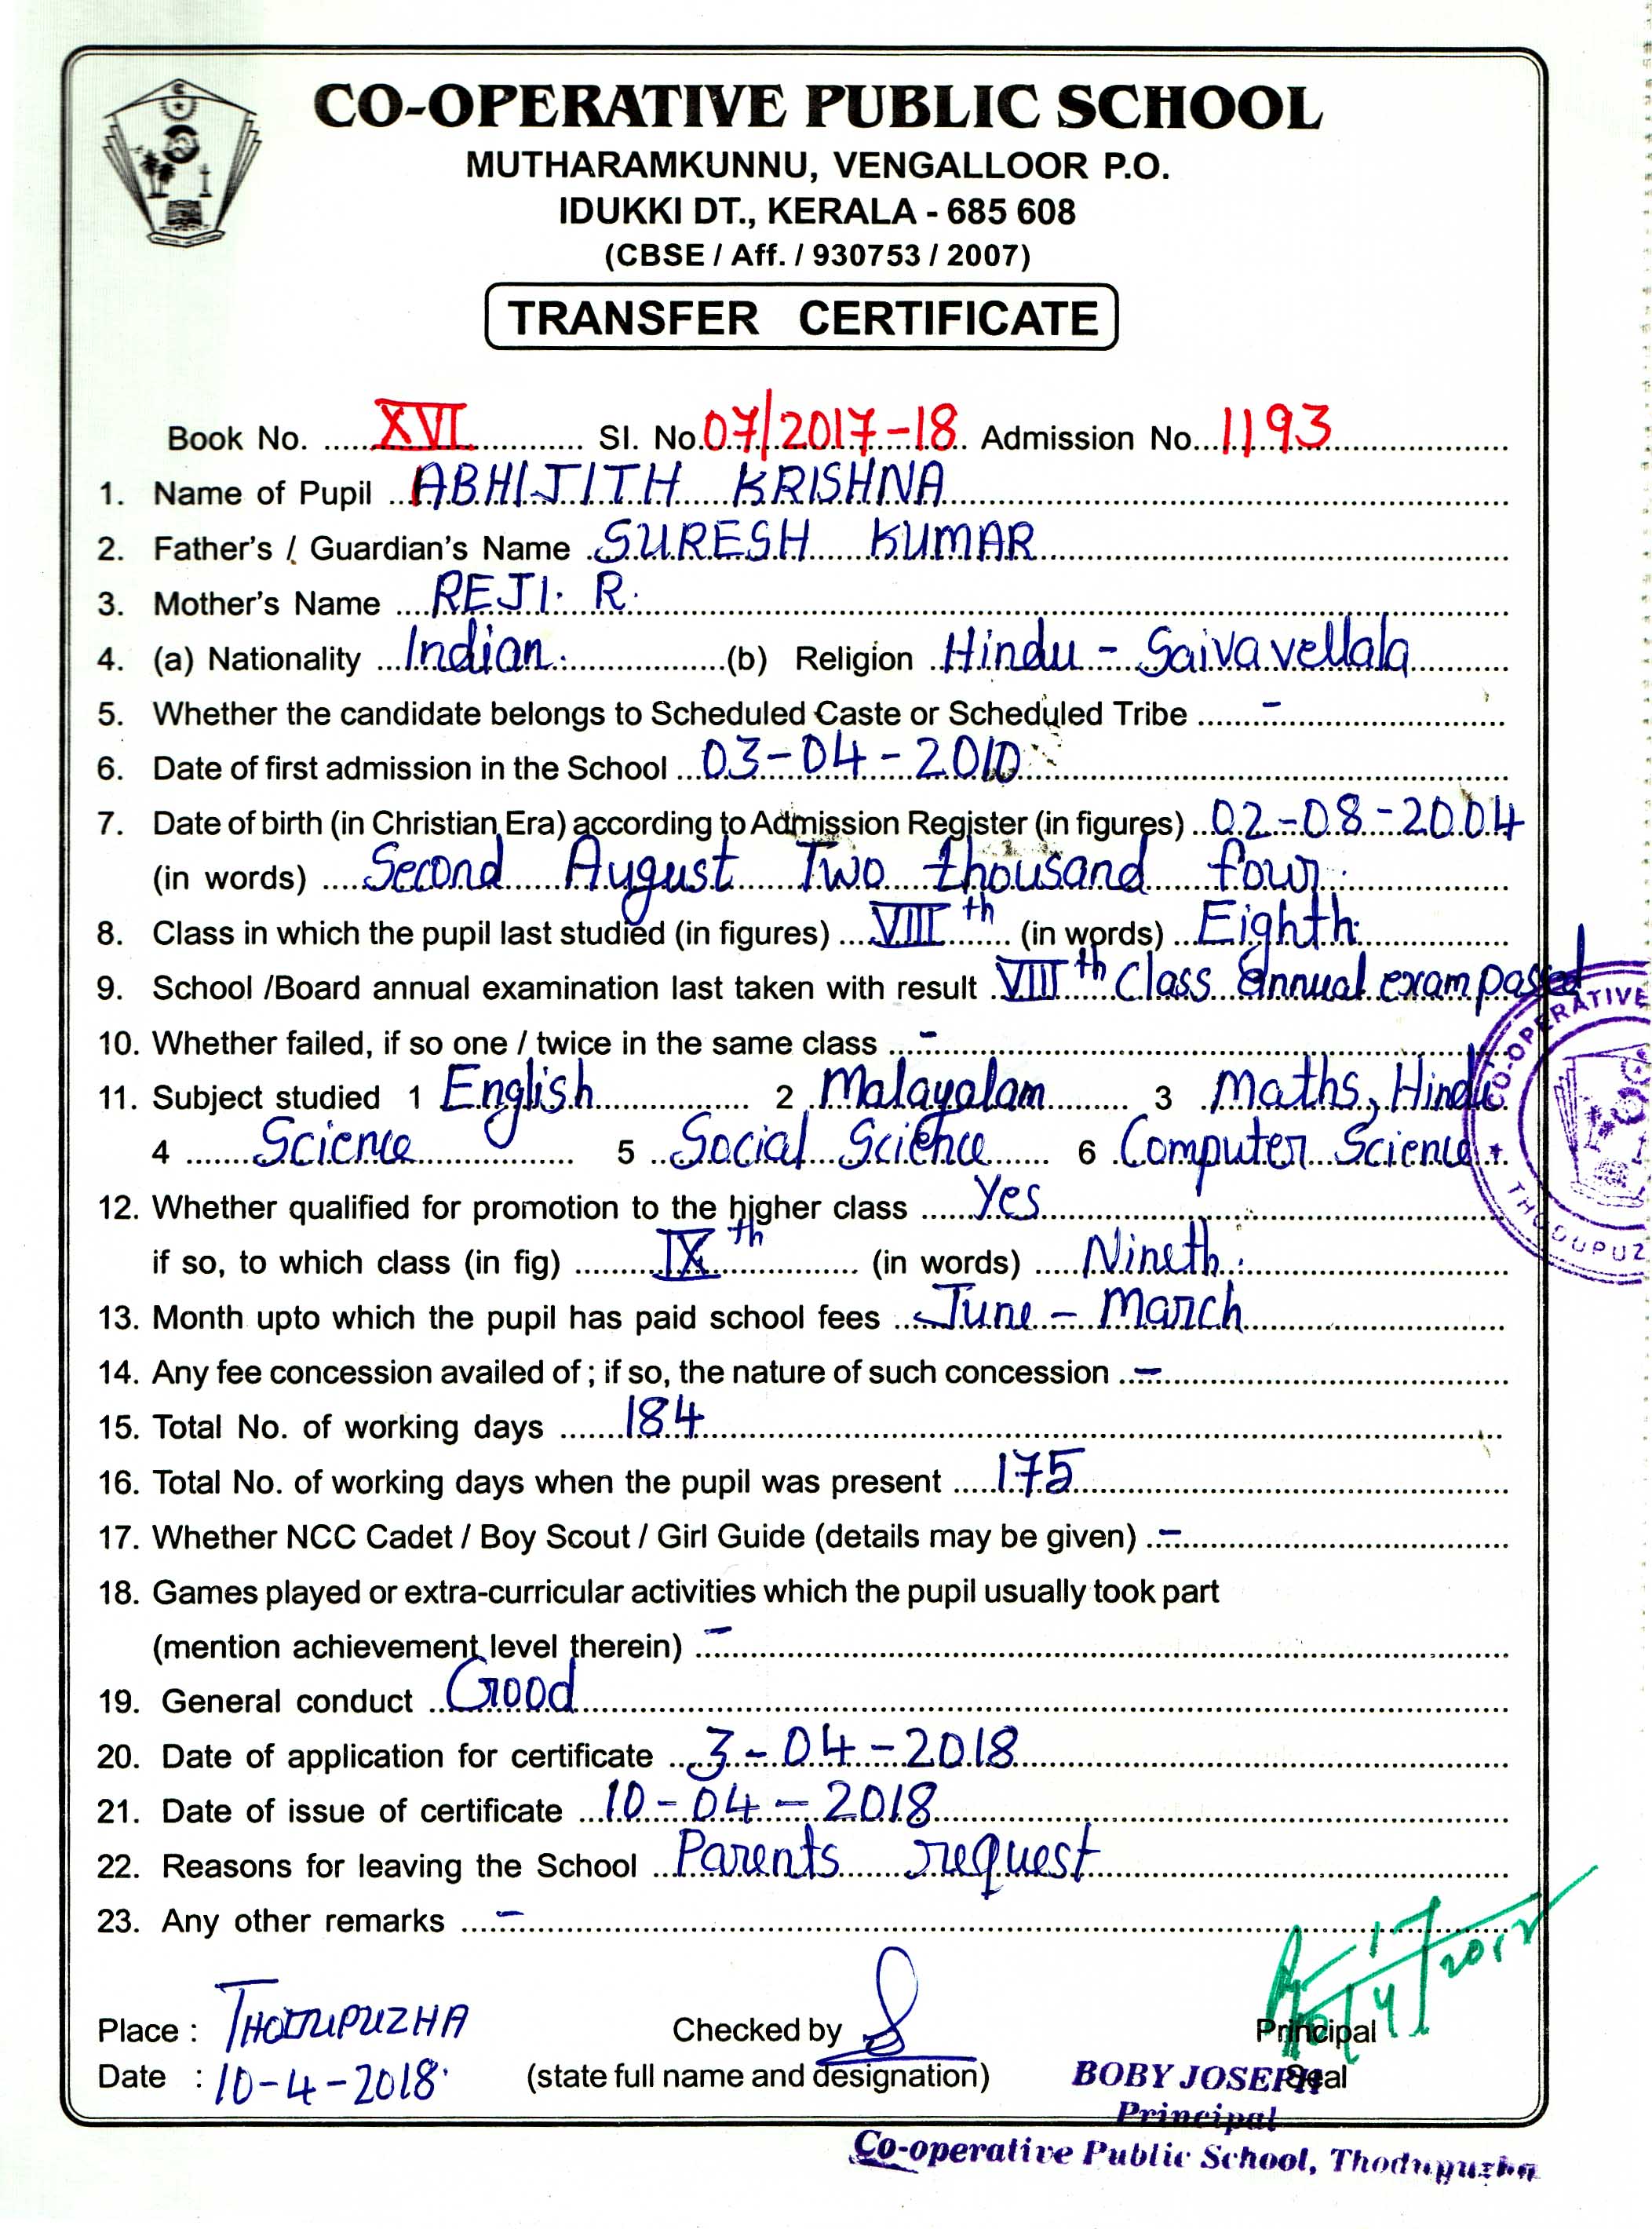 CO-OPERATIVE PUBLIC SCHOOL
MUTHARAMKUNNU, VENGALLOOR P.O.
IDUKKI DT., KERALA - 685 608
(CBSE / Aff. / 930753 / 2007)
TRANSFER CERTIFICATE
Book No. XVI Sl. No. 07/2017-18 Admission No. 1193
1. Name of Pupil ABHIJITH KRISHNA
2. Father's / Guardian's Name SURESH KUMAR
3. Mother's Name REJI. R.
4. (a) Nationality Indian. (b) Religion Hindu - Saiva vellala
5. Whether the candidate belongs to Scheduled Caste or Scheduled Tribe -
6. Date of first admission in the School 03-04-2010
7. Date of birth (in Christian Era) according to Admission Register (in figures) 02-08-2004
(in words) Second August Two thousand four.
8. Class in which the pupil last studied (in figures) VIII th (in words) Eighth.
9. School /Board annual examination last taken with result VIII th Class Annual exam passed
10. Whether failed, if so one / twice in the same class -
11. Subject studied 1 English 2 Malayalam 3 Maths, Hindi
4 Science 5 Social Science 6 Computer Science
12. Whether qualified for promotion to the higher class Yes
if so, to which class (in fig) IX th (in words) Nineth.
13. Month upto which the pupil has paid school fees June - March
14. Any fee concession availed of ; if so, the nature of such concession -
15. Total No. of working days 184
16. Total No. of working days when the pupil was present 175
17. Whether NCC Cadet / Boy Scout / Girl Guide (details may be given) -
18. Games played or extra-curricular activities which the pupil usually took part
(mention achievement level therein) -
19. General conduct Good
20. Date of application for certificate 3-04-2018
21. Date of issue of certificate 10-04-2018
22. Reasons for leaving the School Parents request
23. Any other remarks -
CO-OPERATIVE
THODUPUZ
Place : THODUPUZHA Checked by Principal
Date : 10-4-2018. (state full name and designation) Seal
BOBY JOSEPH
Principal
Co-operative Public School, Thodupuzha